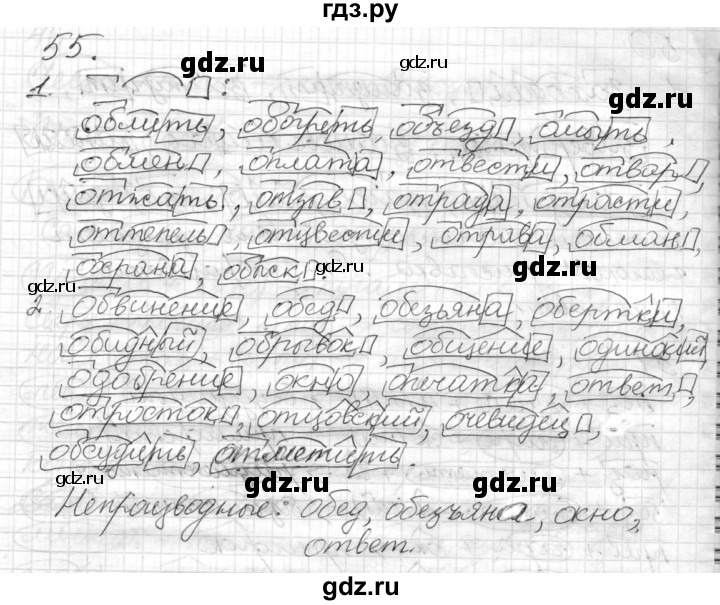 гдз.ру
55.
gdz.ru gdz.ru
1. :
облить, обогреть, объезд, омыть,
обмен, оплата, отвести, отвар,
отжать, отзыв, отрада, отрасти,
оттепель, отцвести, отрава, обман,
охрана, обыск.
gdz.ru gdz.ru gdz.ru
2. обвинение, обед, обезьяна, обертки,
обидный, обрывок, общение, одинокий,
одобрение, окно, опечатка, ответ,
отросток, отцовский, очевидец,
обсудить, отметить.
gdz.ru gdz.ru gdz.ru
Непроизводные: обед, обезьяна, окно,
ответ.
gdz.ru